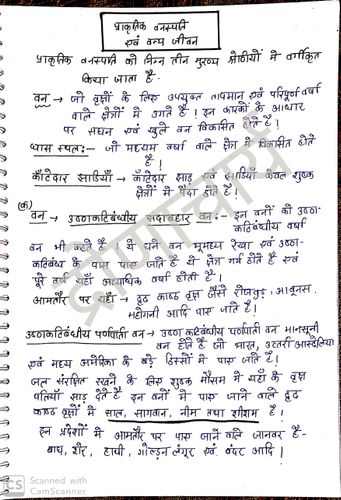 प्राकृतिक वनस्पति
एवं वन्य जीवन
प्राकृतिक वनस्पति को निम्न तीन मुख्य श्रेणीयों में वर्गीकृत
किया जाता है -
वन → जो वृक्षों के लिए उपयुक्त तापमान एवं परिपूर्ण वर्षा
वाले क्षेत्रों में उगते हैं। इन कारकों के आधार
पर सघन एवं खुले वन विकासित होते हैं।
घास स्थल:- जो मध्यम वर्षा वाले क्षेत्र में विकासित होते
हैं।
काँटेदार झाडियाँ → काँटेदार झाड एवं झाडियाँ केवल शुष्क
क्षेत्रों में पैदा होते हैं।
(क)
वन → उष्णकटिबंधीय सदाबहार वन:- इन वनों को उष्ण-
कटिबंधीय वर्षा
वन भी कहते हैं। ये घने वन भूमध्य रेखा एवं उष्ण-
कटिबंध के पास पाए जाते हैं ये क्षेत्र गर्म होते हैं एवं
पूरे वर्ष यहाँ अत्याधिक वर्षा होती है।
आमतौर पर यहाँ → दृढ काष्ठ वृक्ष जैसे रोजवुड, आबनूस,
महोगनी आदि पाए जाते हैं।
उष्णकटिबंधीय पर्णपाती वन → उष्ण कटिबंधीय पर्णपाती वन मानसूनी
वन होते हैं जो भारत, उत्तरी आस्ट्रेलिया
एवं मध्य अमेरिका के बड़े हिस्सों में पाए जाते हैं।
जल संरक्षित रखने के लिए शुष्क मौसम में यहाँ के वृक्ष
पतियाँ झाड देते हैं इन वनों में पाए जाने वाले दृढ
काष्ठ वृक्षों में साल, सागवान, नीम तथा शीशम हैं।
इन प्रदेशों में आमतौर पर पाए जाने वाले जानवर हैं-
बाघ, शेर, हाथी, गोल्डन लंगूर एवं बंदर आदि।
CS Scanned with
CamScanner